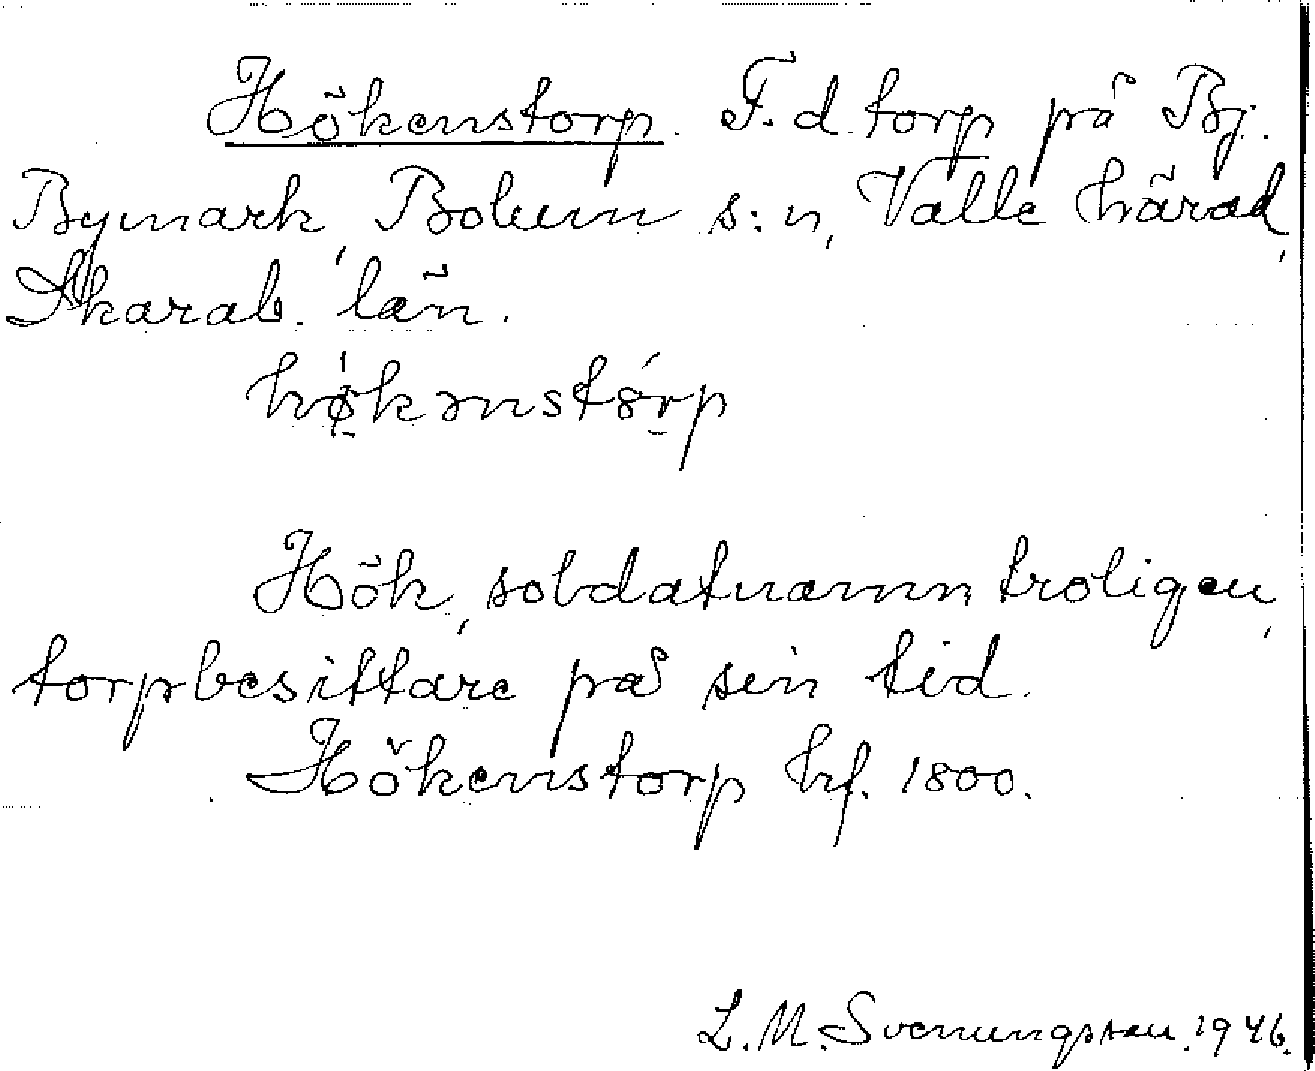 Hökenstorp. F. d. torp på Bj.
Bymark, Bolum s:n, Valle härad,
Skarab. län.
Hök, soldatnamn, troligen,
torpbesittare på sin tid.
Hökenstorp hf. 1800.
L. M. Svenungsson. 1946.